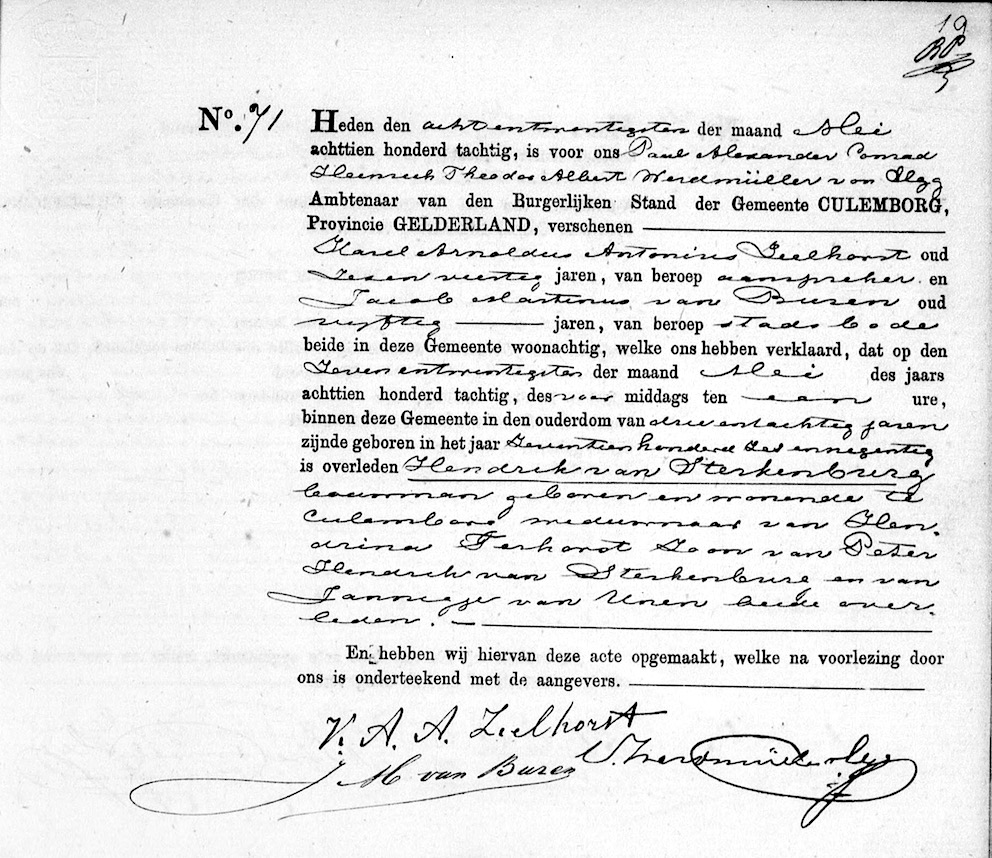 19
No. 71 Heden den acht en twentigsten der maand Mei
achttien honderd tachtig, is voor ons Paul Alexander Conrad
Heinrich Theodor Albert Werdmüller von Elgg
Ambtenaar van den Burgerlijken Stand der Gemeente CULEMBORG,
Provincie GELDERLAND, verschenen
Karel Arnoldus Antonius Zeelhorst oud
zes en veertig jaren, van beroep aanspreker en
Jacob Martinus van Buren oud
vyftig jaren, van beroep stads bode
beide in deze Gemeente woonachtig, welke ons hebben verklaard, dat op den
Zeven entwintigsten der maand Mei des jaars
achttien honderd tachtig, des voor middags ten een ure,
binnen deze Gemeente in den ouderdom van drie entachtig jaren
zijnde geboren in het jaar Zeventien honderd Zes ennegentig
is overleden Hendrik van Sterkenburg
bouwman geboren en wonende te
Culemborg weduwnaar van Hen
drina Terhorst Zoon van Peter
Hendrik van Sterkenburg en van
Jannigje van Unen beide over
leden.
En hebben wij hiervan deze acte opgemaakt, welke na voorlezing door
ons is onderteekend met de aangevers.
K. A. A. Zeelhorst
J M van Buren Werdmüller